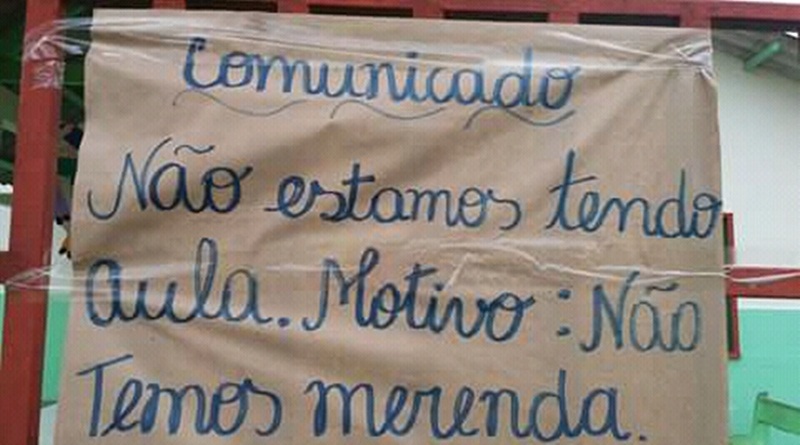 Comunicado
Não estamos tendo
aula. Motivo: Não
Temos merenda.